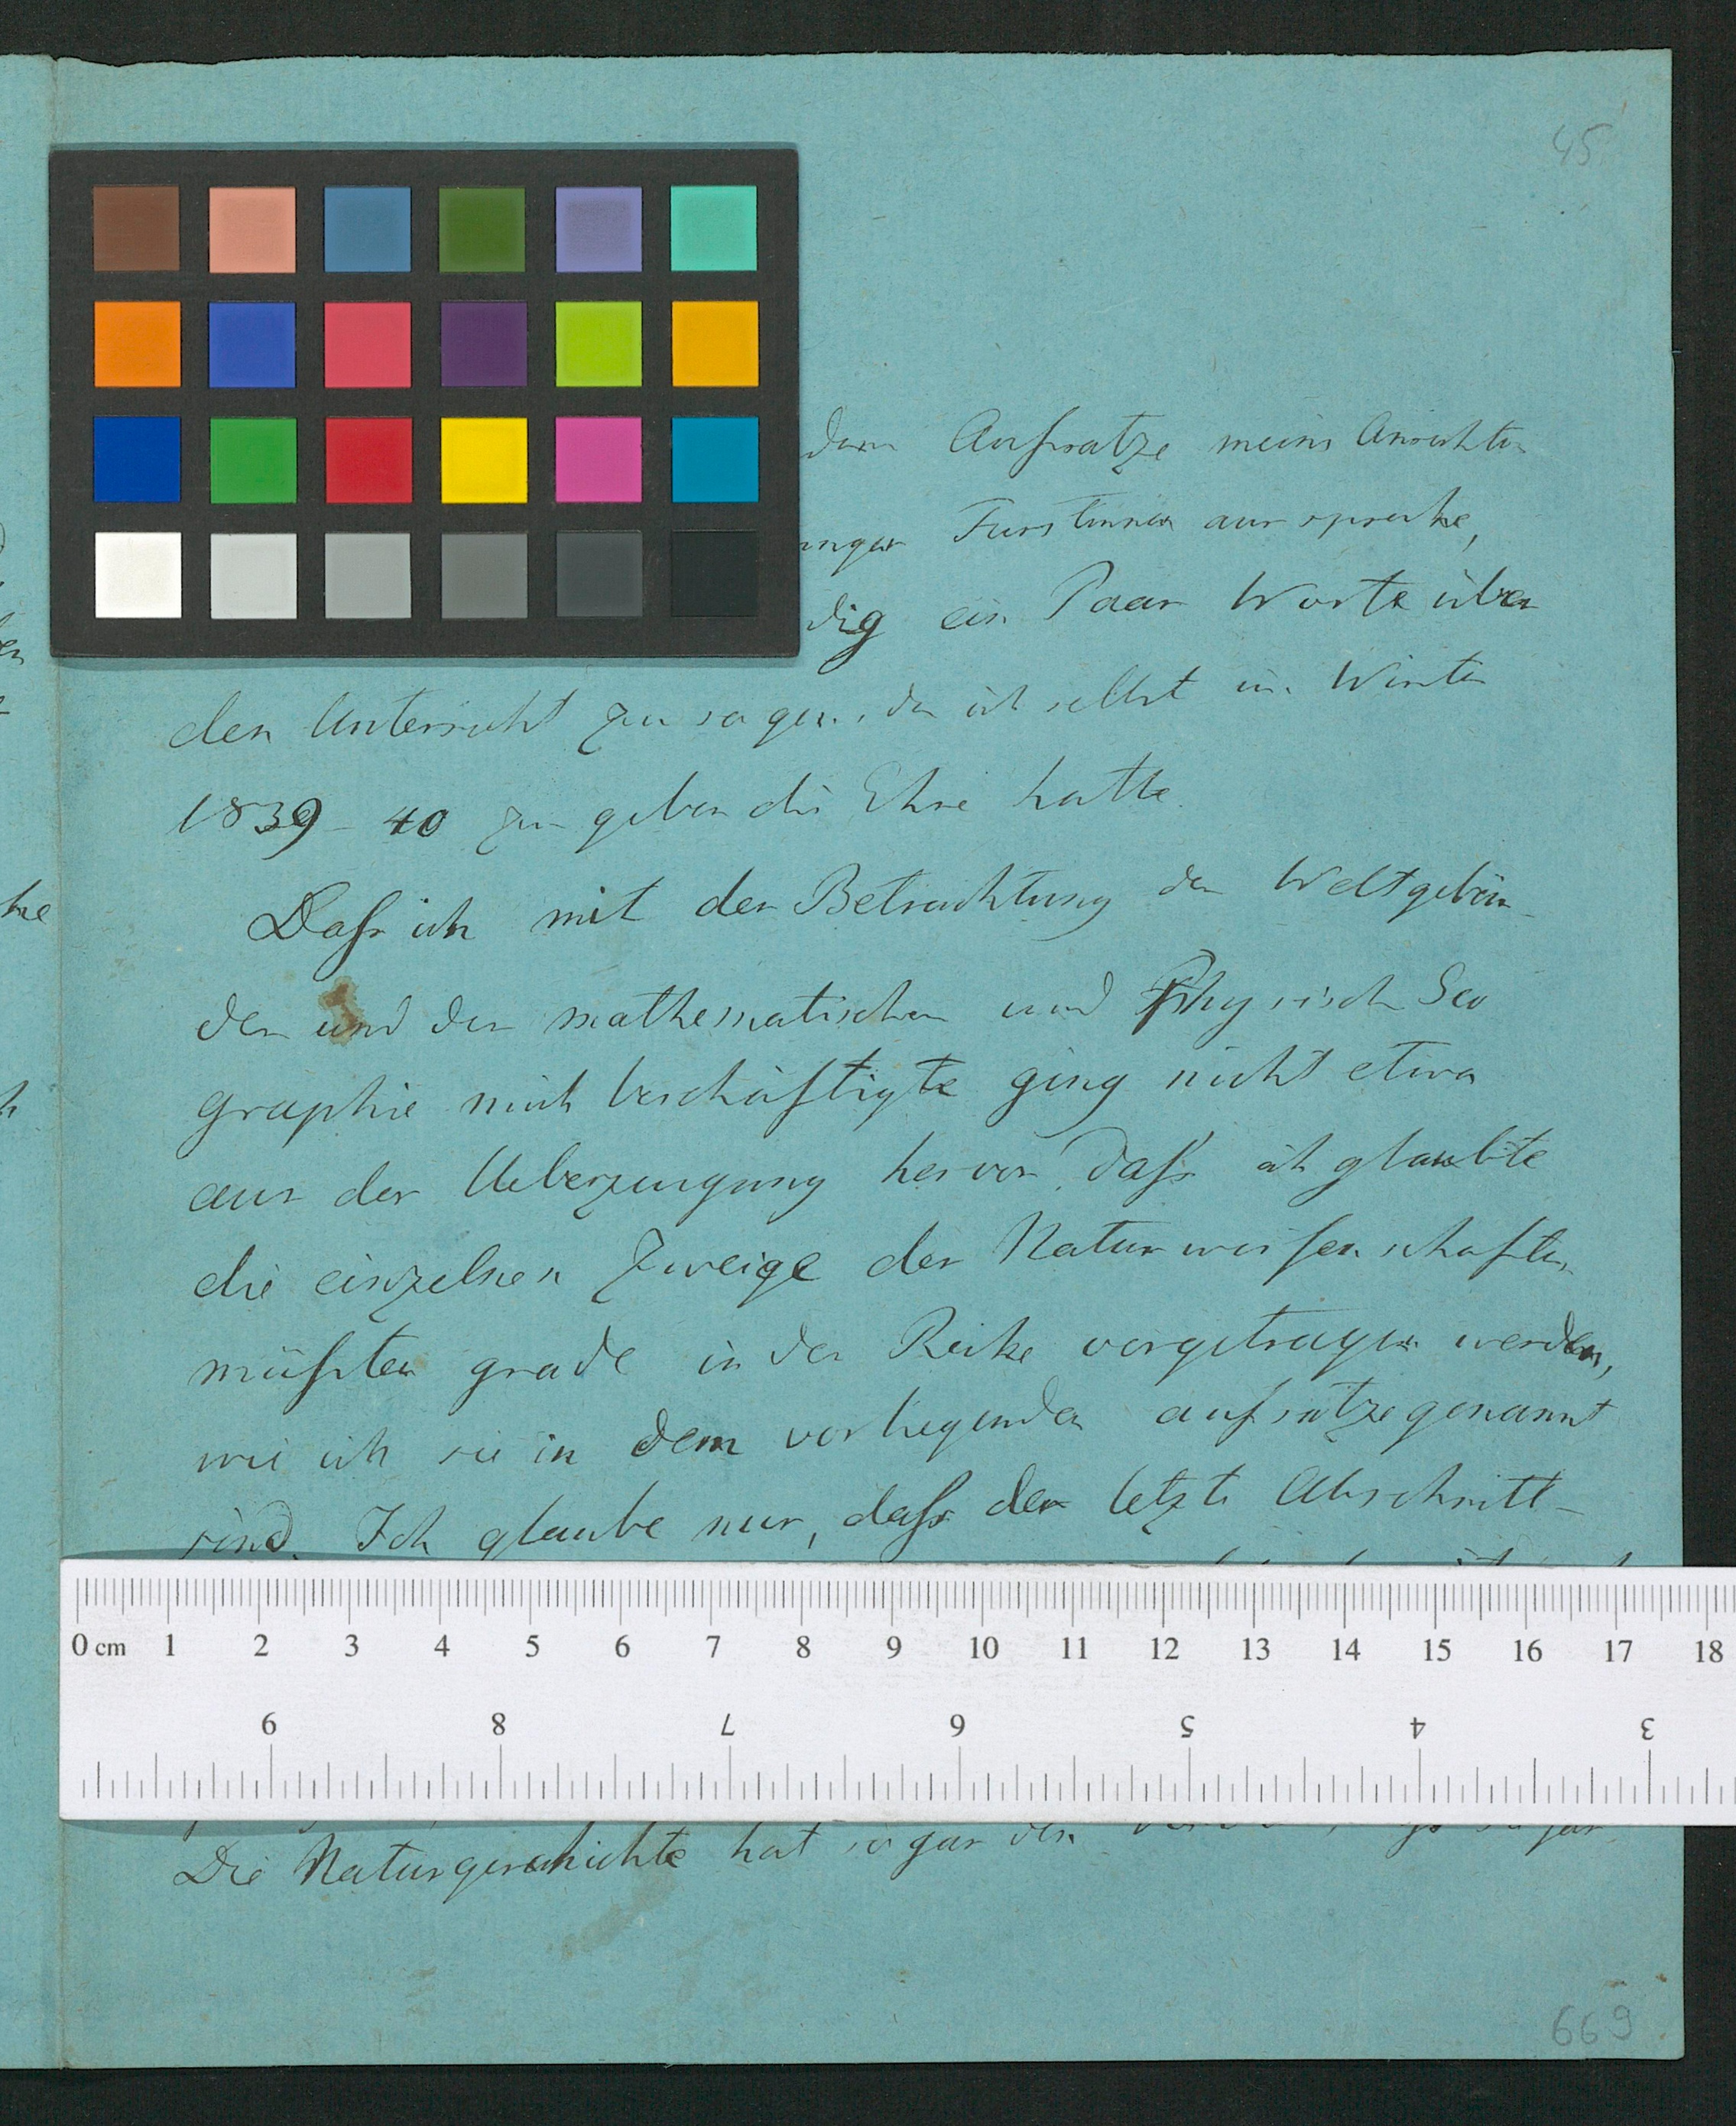 45
dem Aufsatze meine Ansichten
Furstinnen ausspreche,
dig ein Paar Worte über
den Unterricht zu sagen, den ich selbst im Winter
1839-40 zu geben die Ehre hatte.
Dafs ich mit der Betrachtung der Weltgebäu-
der und der mathematischen und Physisch Geo
graphie mich beschäftigte ging nicht etwa
aus der Ueberzeugung hervor, dafs ich glaubte
die einzelnen Zweige der Naturwissenschaften
müfsten grade in der Reihe vorgetragen werden,
wie ich sie in dem vorliegenden aufsatze genannt
sind. Ich glaube nur, dafs der letzte Abschnitt-
0 cm 1 2 3 4 5 6 7 8 9 10 11 12 13 14 15 16 17 18
9 8 7 6 5 4 3
Die Naturgeschichte hat sogar den
669